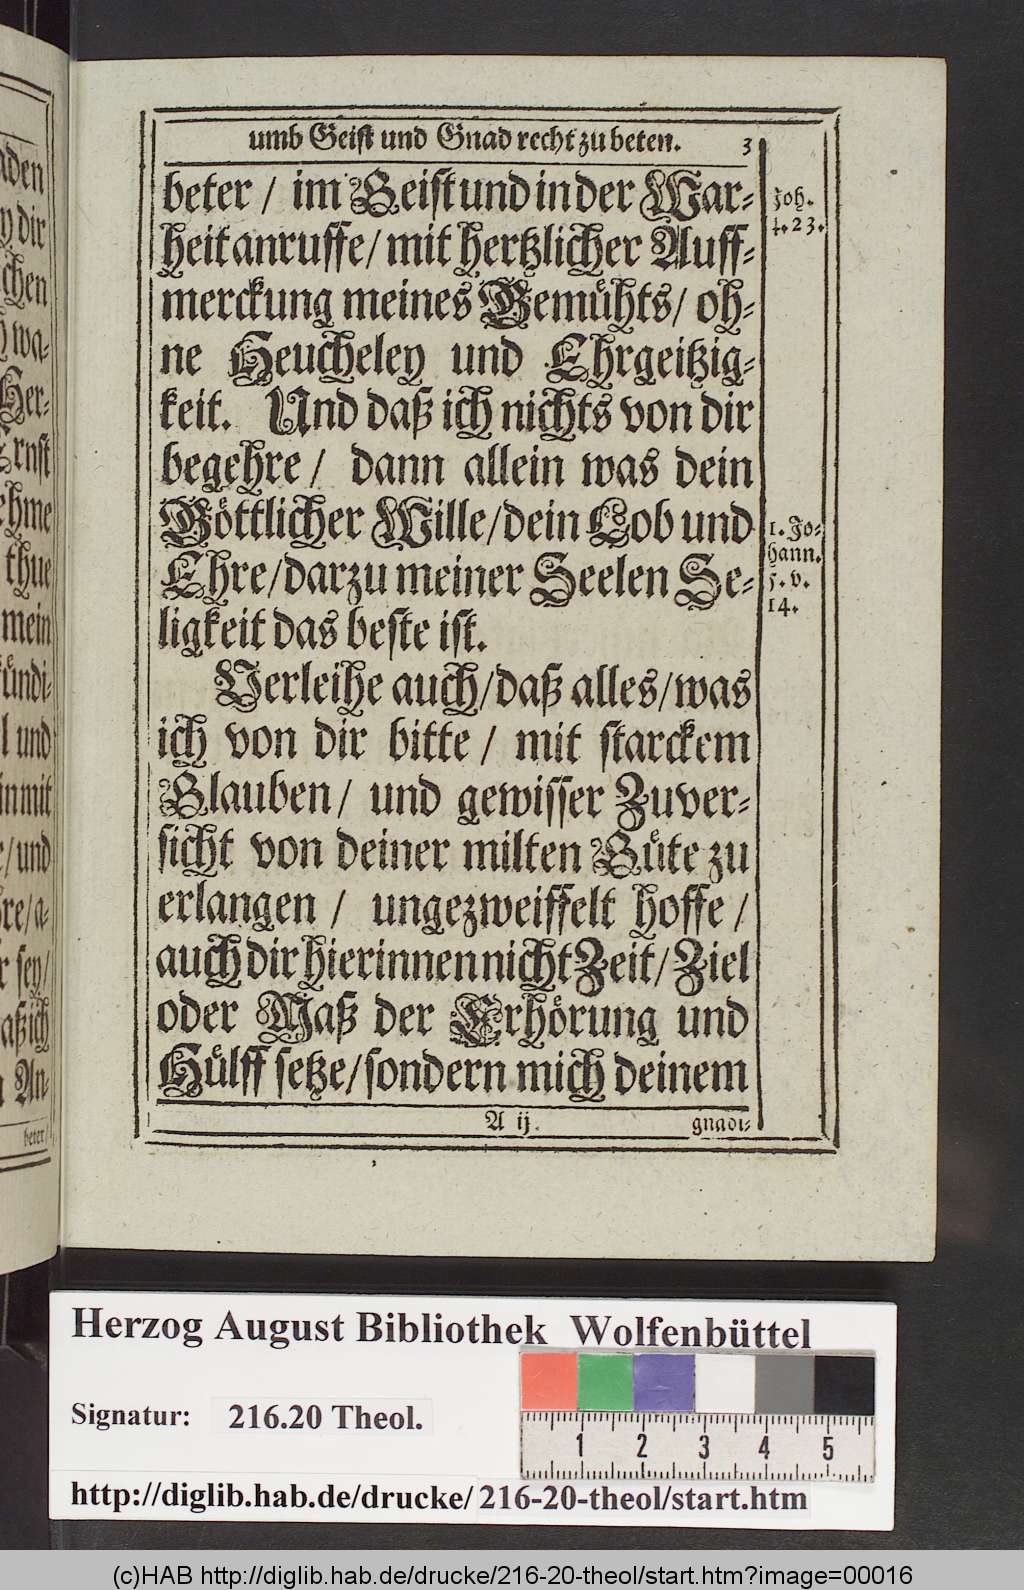 aden
y dir
chen
wa-
Her-
Ernst
ehme
thue
mein
ündi-
l und
in mit
/ und
re / a-
r sey /
aß ich
An-
beter /
umb Geist und Gnad recht zu beten. 3
beter / im Geist und in der War-
heit anruffe / mit hertzlicher Auff-
merckung meines Gemühts / oh-
ne Heucheley und Ehrgeitzig-
keit. Und daß ich nichts von dir
begehre / dann allein was dein
Göttlicher Wille / dein Lob und
Ehre / darzu meiner Seelen Se-
ligkeit das beste ist.
Verleihe auch / daß alles / was
ich von dir bitte / mit starckem
Glauben / und gewisser Zuver-
sicht von deiner milten Güte zu
erlangen / ungezweiffelt hoffe /
auch dir hierinnen nicht Zeit / Ziel
oder Maß der Erhörung und
Hülff setze / sondern mich deinem
A ij.
gnadi-
Joh.
4. 23.
1. Jo-
hann.
5. v.
14.
Herzog August Bibliothek Wolfenbüttel
Signatur: 216.20 Theol.
1 2 3 4 5
http://diglib.hab.de/drucke/216-20-theol/start.htm
(c)HAB http://diglib.hab.de/drucke/216-20-theol/start.htm?image=00016